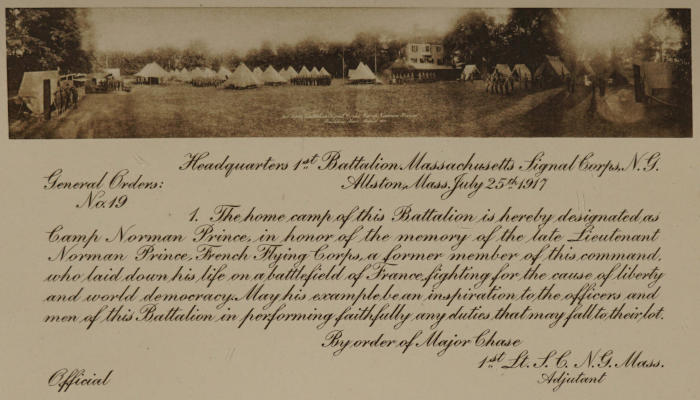 Headquarters 1st Battalion Massachusetts Signal Corps, N.G.
General Orders: Allston, Mass, July 25th 1917
No. 19
1. The home camp of this Battalion is hereby designated as
Camp Norman Prince, in honor of the memory of the late Lieutenant
Norman Prince, French Flying Corps, a former member of this command,
who laid down his life on a battlefield of France, fighting for the cause of liberty
and world democracy. May his example be an inspiration to the officers and
men of this Battalion in performing faithfully any duties that may fall to their lot.
By order of Major Chase
1st Lt. S.C. N.G. Mass.
Official Adjutant